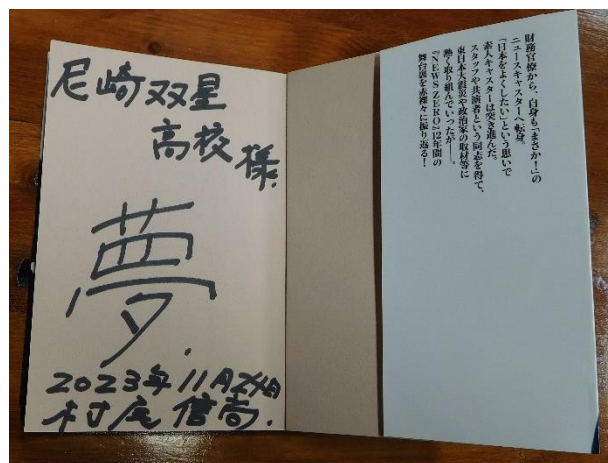 尼崎双星
高校様.
夢.
2023年11月24日
村尾信尚.
財務官僚から、自身も「まさか！」の
ニュースキャスターへ転身。
「日本をよくしたい」という思いで
素人キャスターは突き進んだ。
スタッフや共演者という同志を得て、
東日本大震災や政治家の取材等に
熱く取り組んでいったが――。
『NEWS ZERO』12年間の
舞台裏を赤裸々に振り返る！